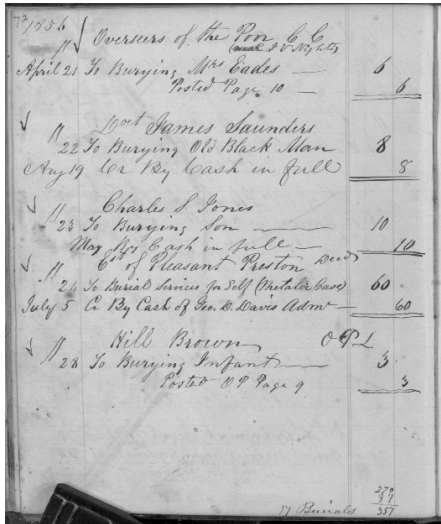 1856
" Overseers of the Poor C C
April 21 To Burying Mrs Eades — 6
Posted Page 10 — 6
" Doct James Saunders
22 To Burying Old Black Man 8
Aug 19 Cr By Cash in full 8
" Charles S Jones
23 To Burying Son — 10
May Cash in full — 10
" Est of Pleasant Preston Decd
24 To Burial Services for Self (Metalic Case) 60
July 5 Cr By Cash of Geo. D. Davis Admr — 60
" Hill Brown O P L
28 To Burying Infant — 3
Posted O P Page 9 3
270
87
17 Burials 357